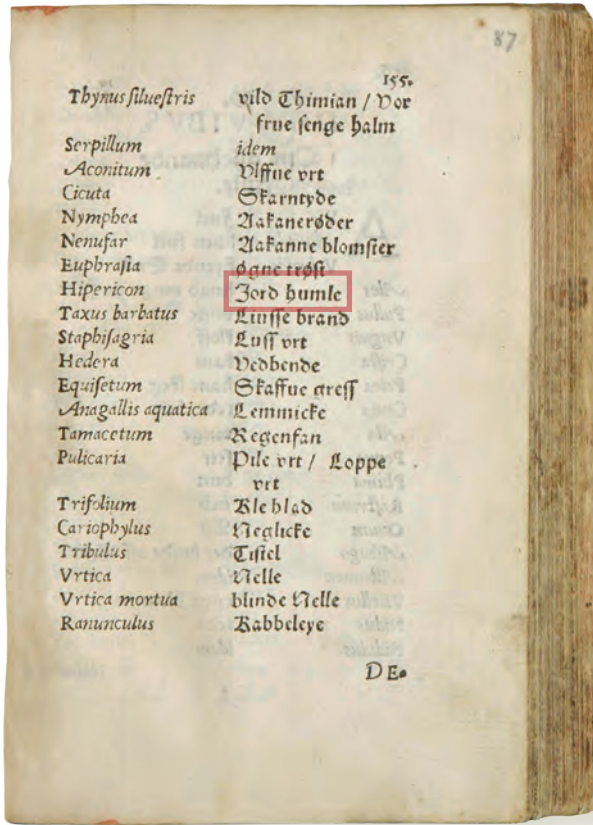 87
155.
Thynus ſilueſtris vild Thimian / Vor
frue ſenge halm
Serpillum idem
Aconitum Vlffue vrt
Cicuta Skarntyde
Nymphea Aakanerøder
Nenufar Aakanne blomſter
Euphraſia øgne trøſt
Hipericon Jord humle
Taxus barbatus Liuſſe brand
Staphiſagria Luſſ vrt
Hedera Vedbende
Equiſetum Skaffue greſſ
Anagallis aquatica Lemmicke
Tamacetum Regenfan
Pulicaria Pile vrt / Loppe
vrt
Trifolium Kle blad
Cariophylus Neglicke
Tribulus Tiſtel
Vrtica Nelle
Vrtica mortua blinde Nelle
Ranunculus Kabbeleye
DE.